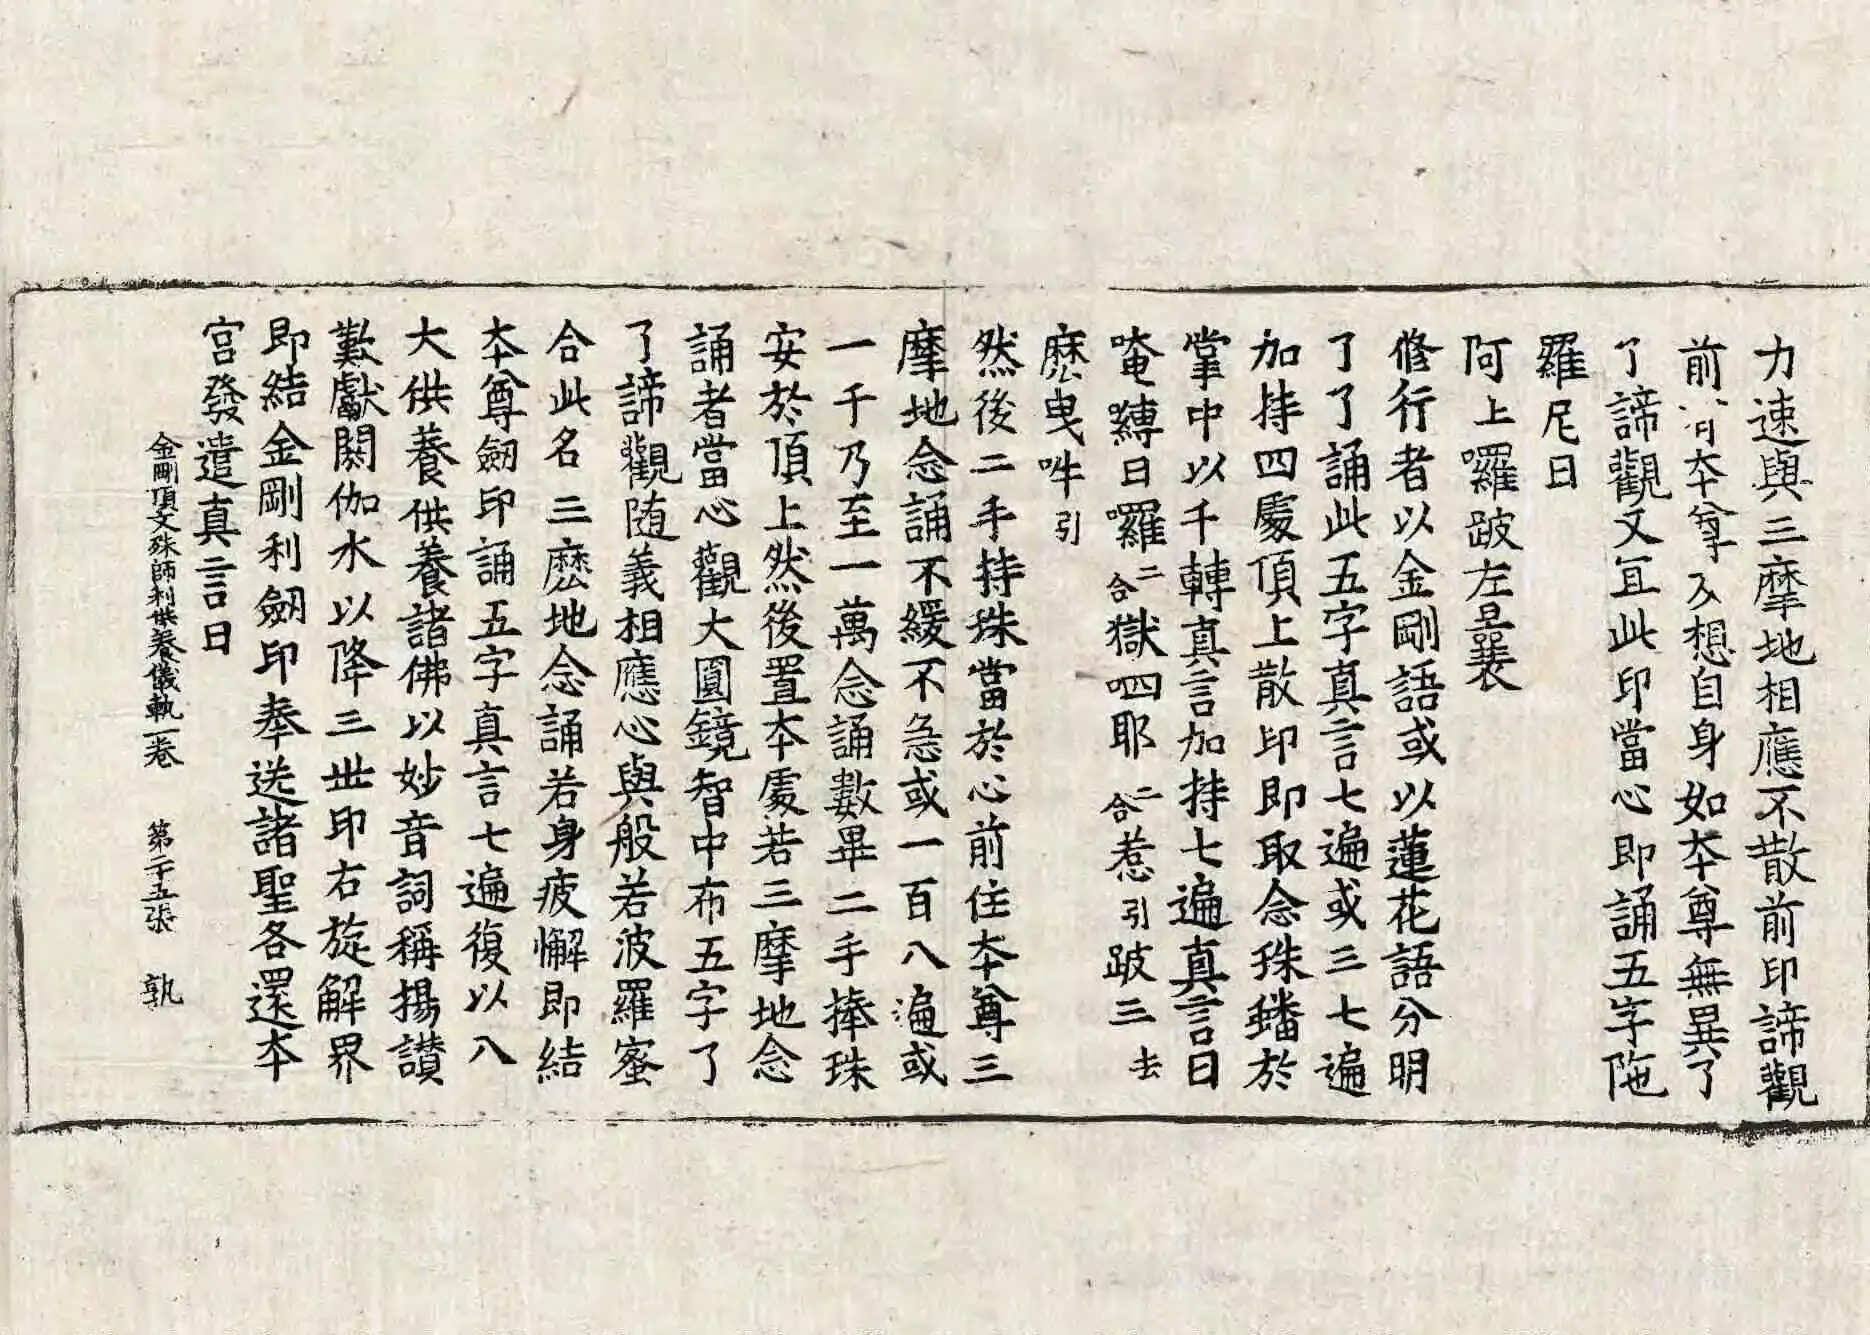 力速與三摩地相應不散前印諦觀
前有夲尊及想自身如夲尊無異了
了諦觀又冝此印當心即誦五字陁
羅尼曰
阿上囉跛左曩
修行者以金剛語或以蓮花語分明
了了誦此五字真言七遍或三七遍
加持四處頂上散印即取念珠蟠於
掌中以千轉真言加持七遍真言曰
唵嚩日囉二合獄呬耶二合惹引跛三去
麽曳吽引
然後二手持珠當於心前住夲尊三
摩地念誦不緩不急或一百八遍或
一千乃至一萬念誦數畢二手捧珠
安於頂上然後置夲處若三摩地念
誦者當心觀大圓鏡智中布五字了
了諦觀随義相應心與般若波羅蜜
合此名三麽地念誦若身疲懈即結
夲尊劒印誦五字真言七遍復以八
大供養供養諸佛以妙音詞稱揚讃
歎獻閼伽水以降三丗印右旋解界
即結金剛利劒印奉送諸聖各還夲
宮發遣真言曰
金剛頂文殊師利供養儀軌一卷 第二十五張 孰